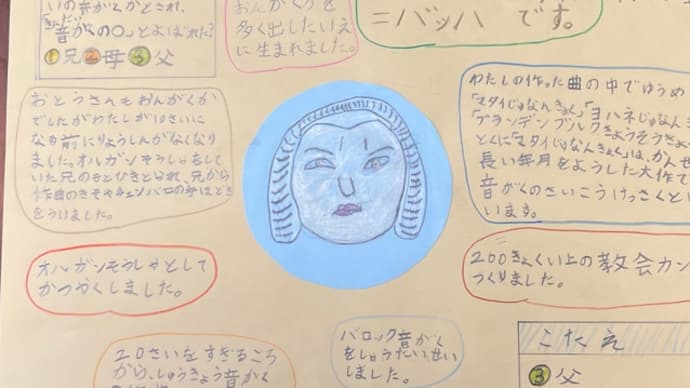 いの音がくかとされ、
「きんだい
音がくの〇」とよばれた?
①兄②母③父
おんがくかを
多く出したいえ
に生まれました。
=バッハ です。
おとうさんもおんがくか
でしたがわたしが10さいに
なる前にりょうしんがなくなり
ました。オルガンそうしゃをして
いた兄のもとひきとられ、兄から
作曲のきそやチェンバロの手ほどき
をうけました。
わたしの作った曲の中でゆうめ
「マタイじゅなんきょく」「ヨハネじゅなんき
「ブランデンブルクきょうそうきょ
とくに「マタイじゅなんきょく」は、かんせ
長い年月をようした大作で
音がくのさいこうけっさくとい
います。
オルガンそうしゃとして
かつやくしました。
200きょくい上の教会カン
つくりました。
20さいをすぎるころ
から、しゅうきょう音がく
バロック音がく
をしゅうたいせい
しました。
こたえ
③父